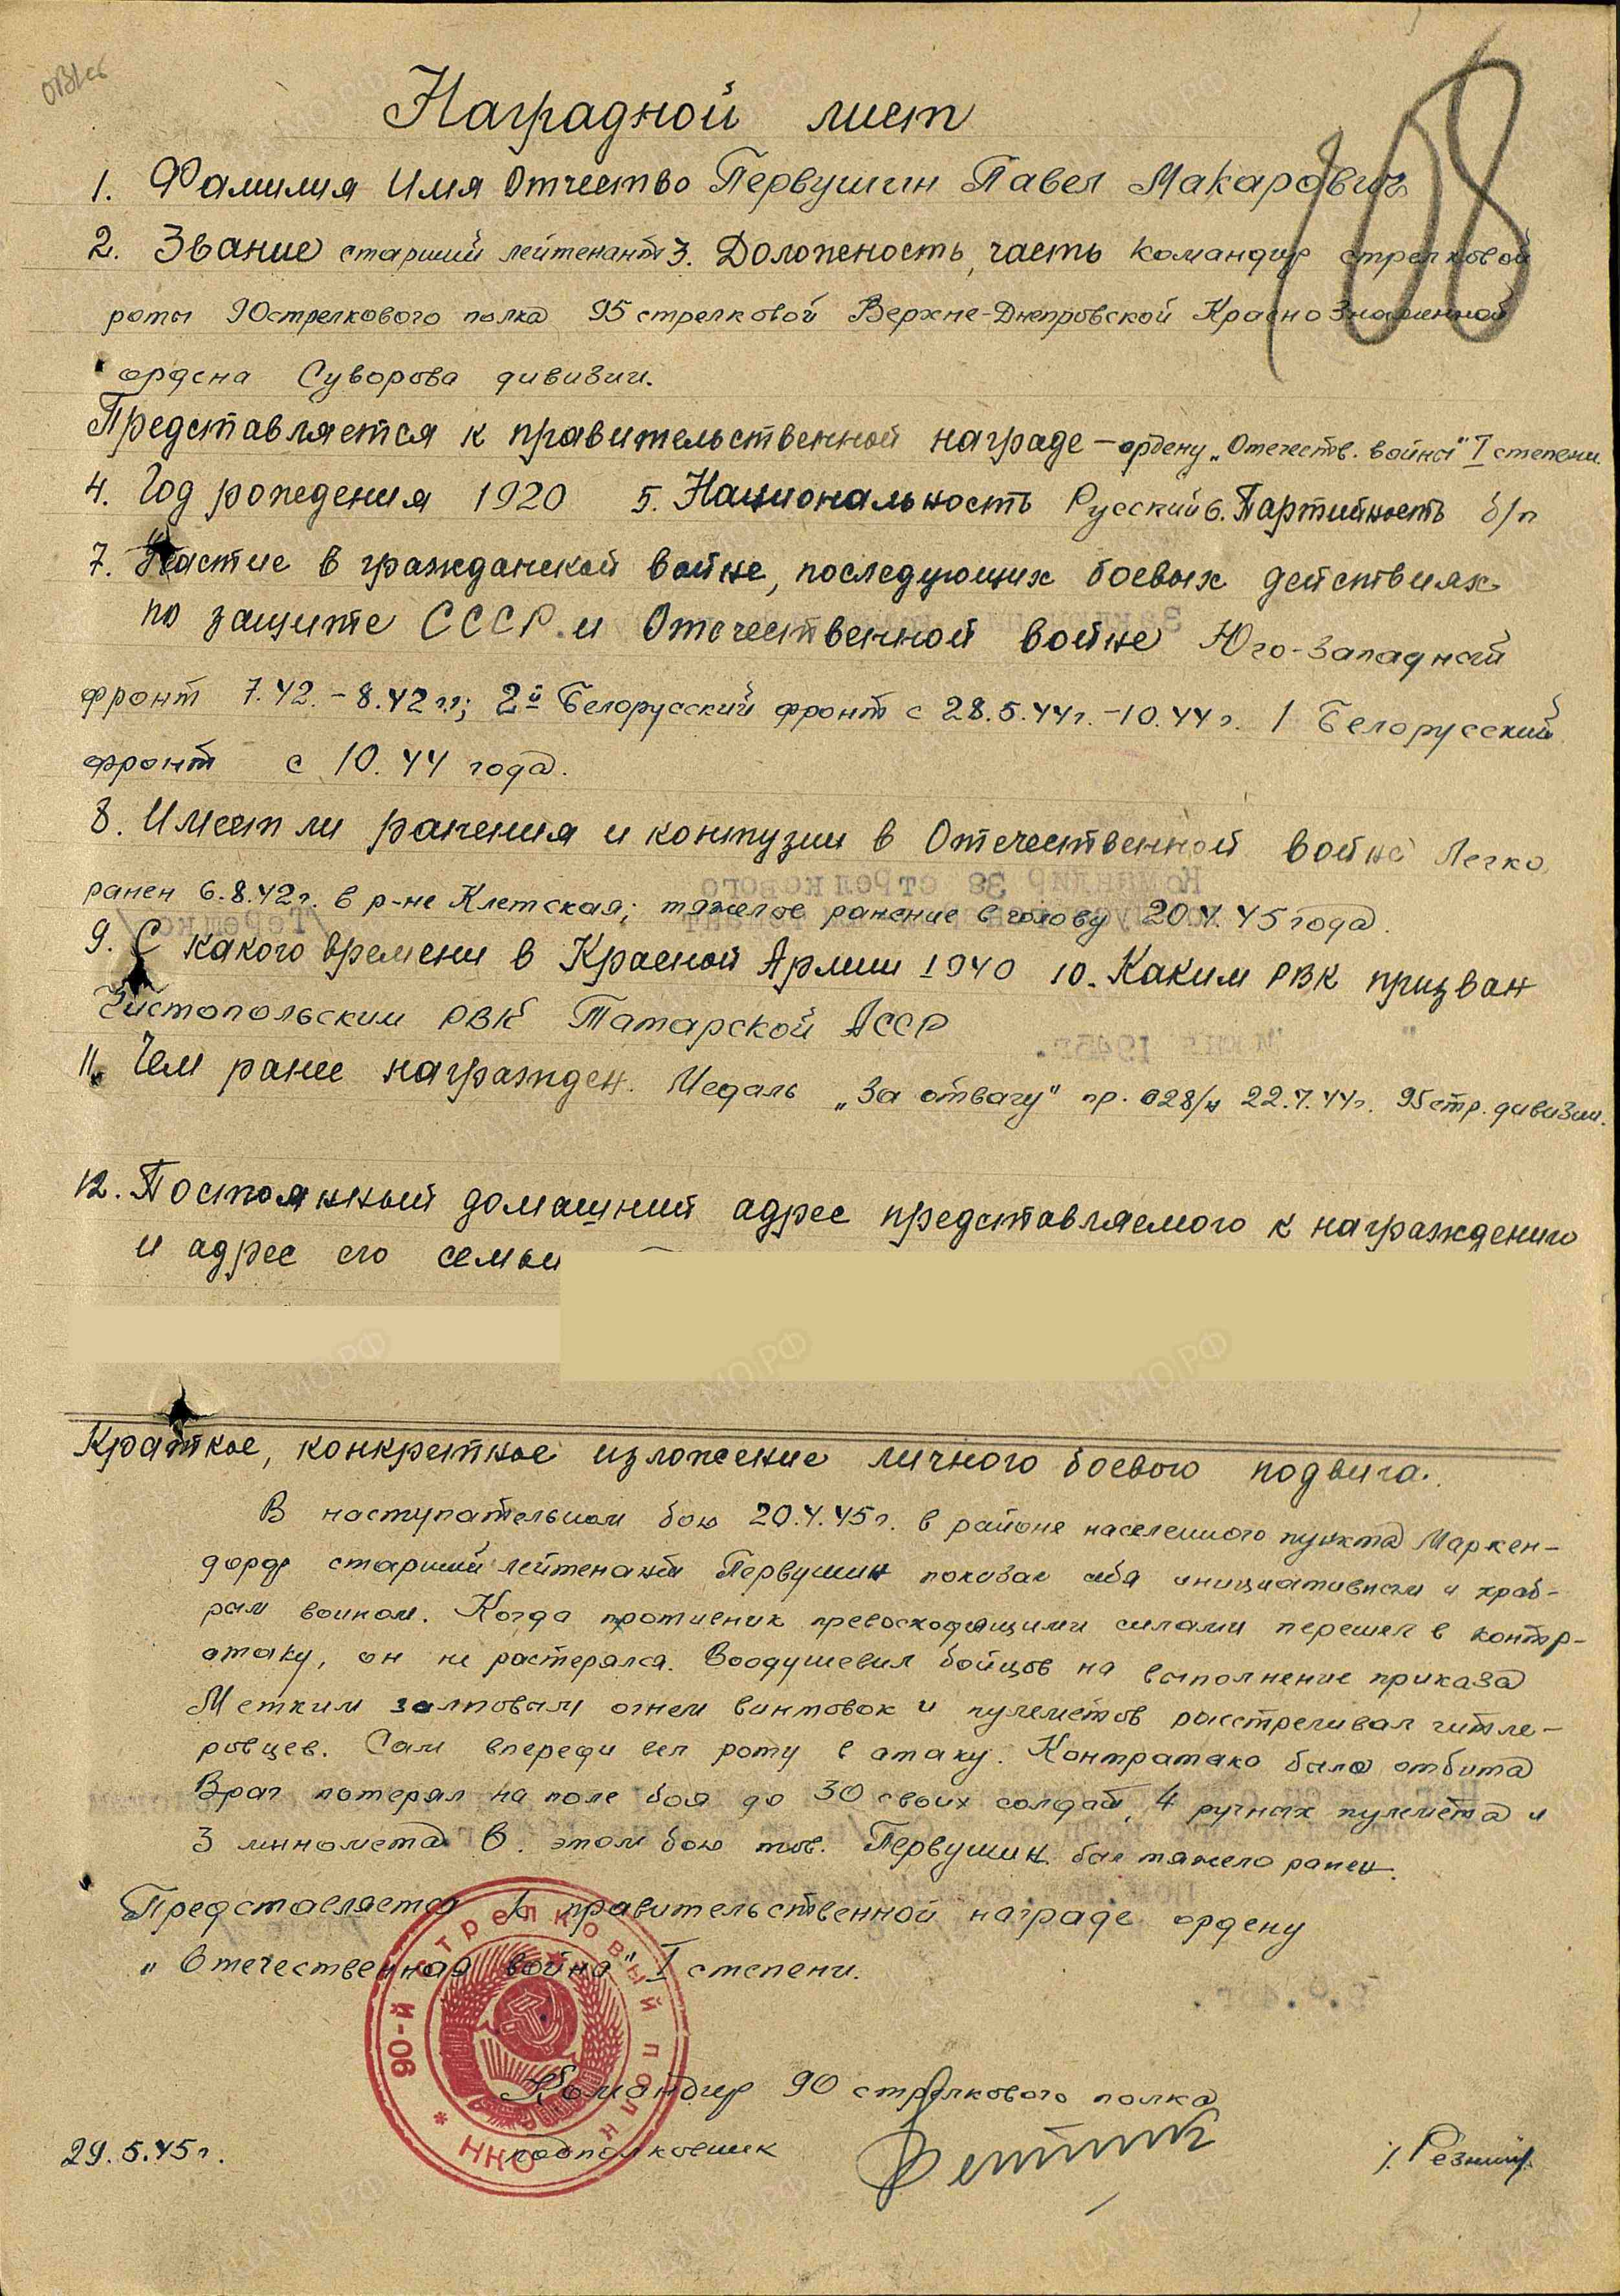 108
Наградной лист
1. Фамилия Имя Отчество Первушин Павел Макарович
2. Звание старший лейтенант 3. Должность, часть командир стрелковой
роты 90 стрелкового полка 95 стрелковой Верхне-Днепровской Краснознаменной
ордена Суворова дивизии.
Представляется к правительственной награде – ордену „Отечеств. войны" I степени.
4. Год рождения 1920 5. Национальность Русский 6. Партийность б/п
7. Участие в гражданской войне, последующих боевых действиях
по защите СССР и Отечественной войне Юго-Западный
фронт 7.42. – 8.42 гг; 2й Белорусский фронт с 28.5.44г. – 10.44 г. 1 Белорусский
фронт с 10.44 года.
8. Имеет ли ранения и контузии в Отечественной войне Легко
ранен 6.8.42г. в р-не Клетская; тяжелое ранение в голову 20.4.45 года.
9. С какого времени в Красной Армии 1940 10. Каким РВК призван
Чистопольским РВК Татарской АССР
11. Чем ранее награжден. Медаль „За отвагу" пр. 028/н 22.7.44г. 95 стр. дивизии.
12. Постоянный домашний адрес представляемого к награждению
и адрес его семьи
Краткое, конкретное изложение личного боевого подвига.
В наступательном бою 20.4.45г. в районе населенного пункта Маркен-
дорф старший лейтенант Первушин показал себя инициативным и храб-
рым воином. Когда противник превосходящими силами перешел в контр-
атаку, он не растерялся. Воодушевил бойцов на выполнение приказа
Метким залповым огнем винтовок и пулеметов расстреливал гитле-
ровцев. Сам впереди вел роту в атаку. Контратака была отбита
Враг потерял на поле боя до 30 своих солдат, 4 ручных пулемета и
3 миномета. В этом бою тов. Первушин был тяжело ранен.
Представляется к правительственной награде ордену
„Отечественная война" I степени.
90-й стрелковый полк
НКО
Командир 90 стрелкового полка
подполковник
29.5.45г.